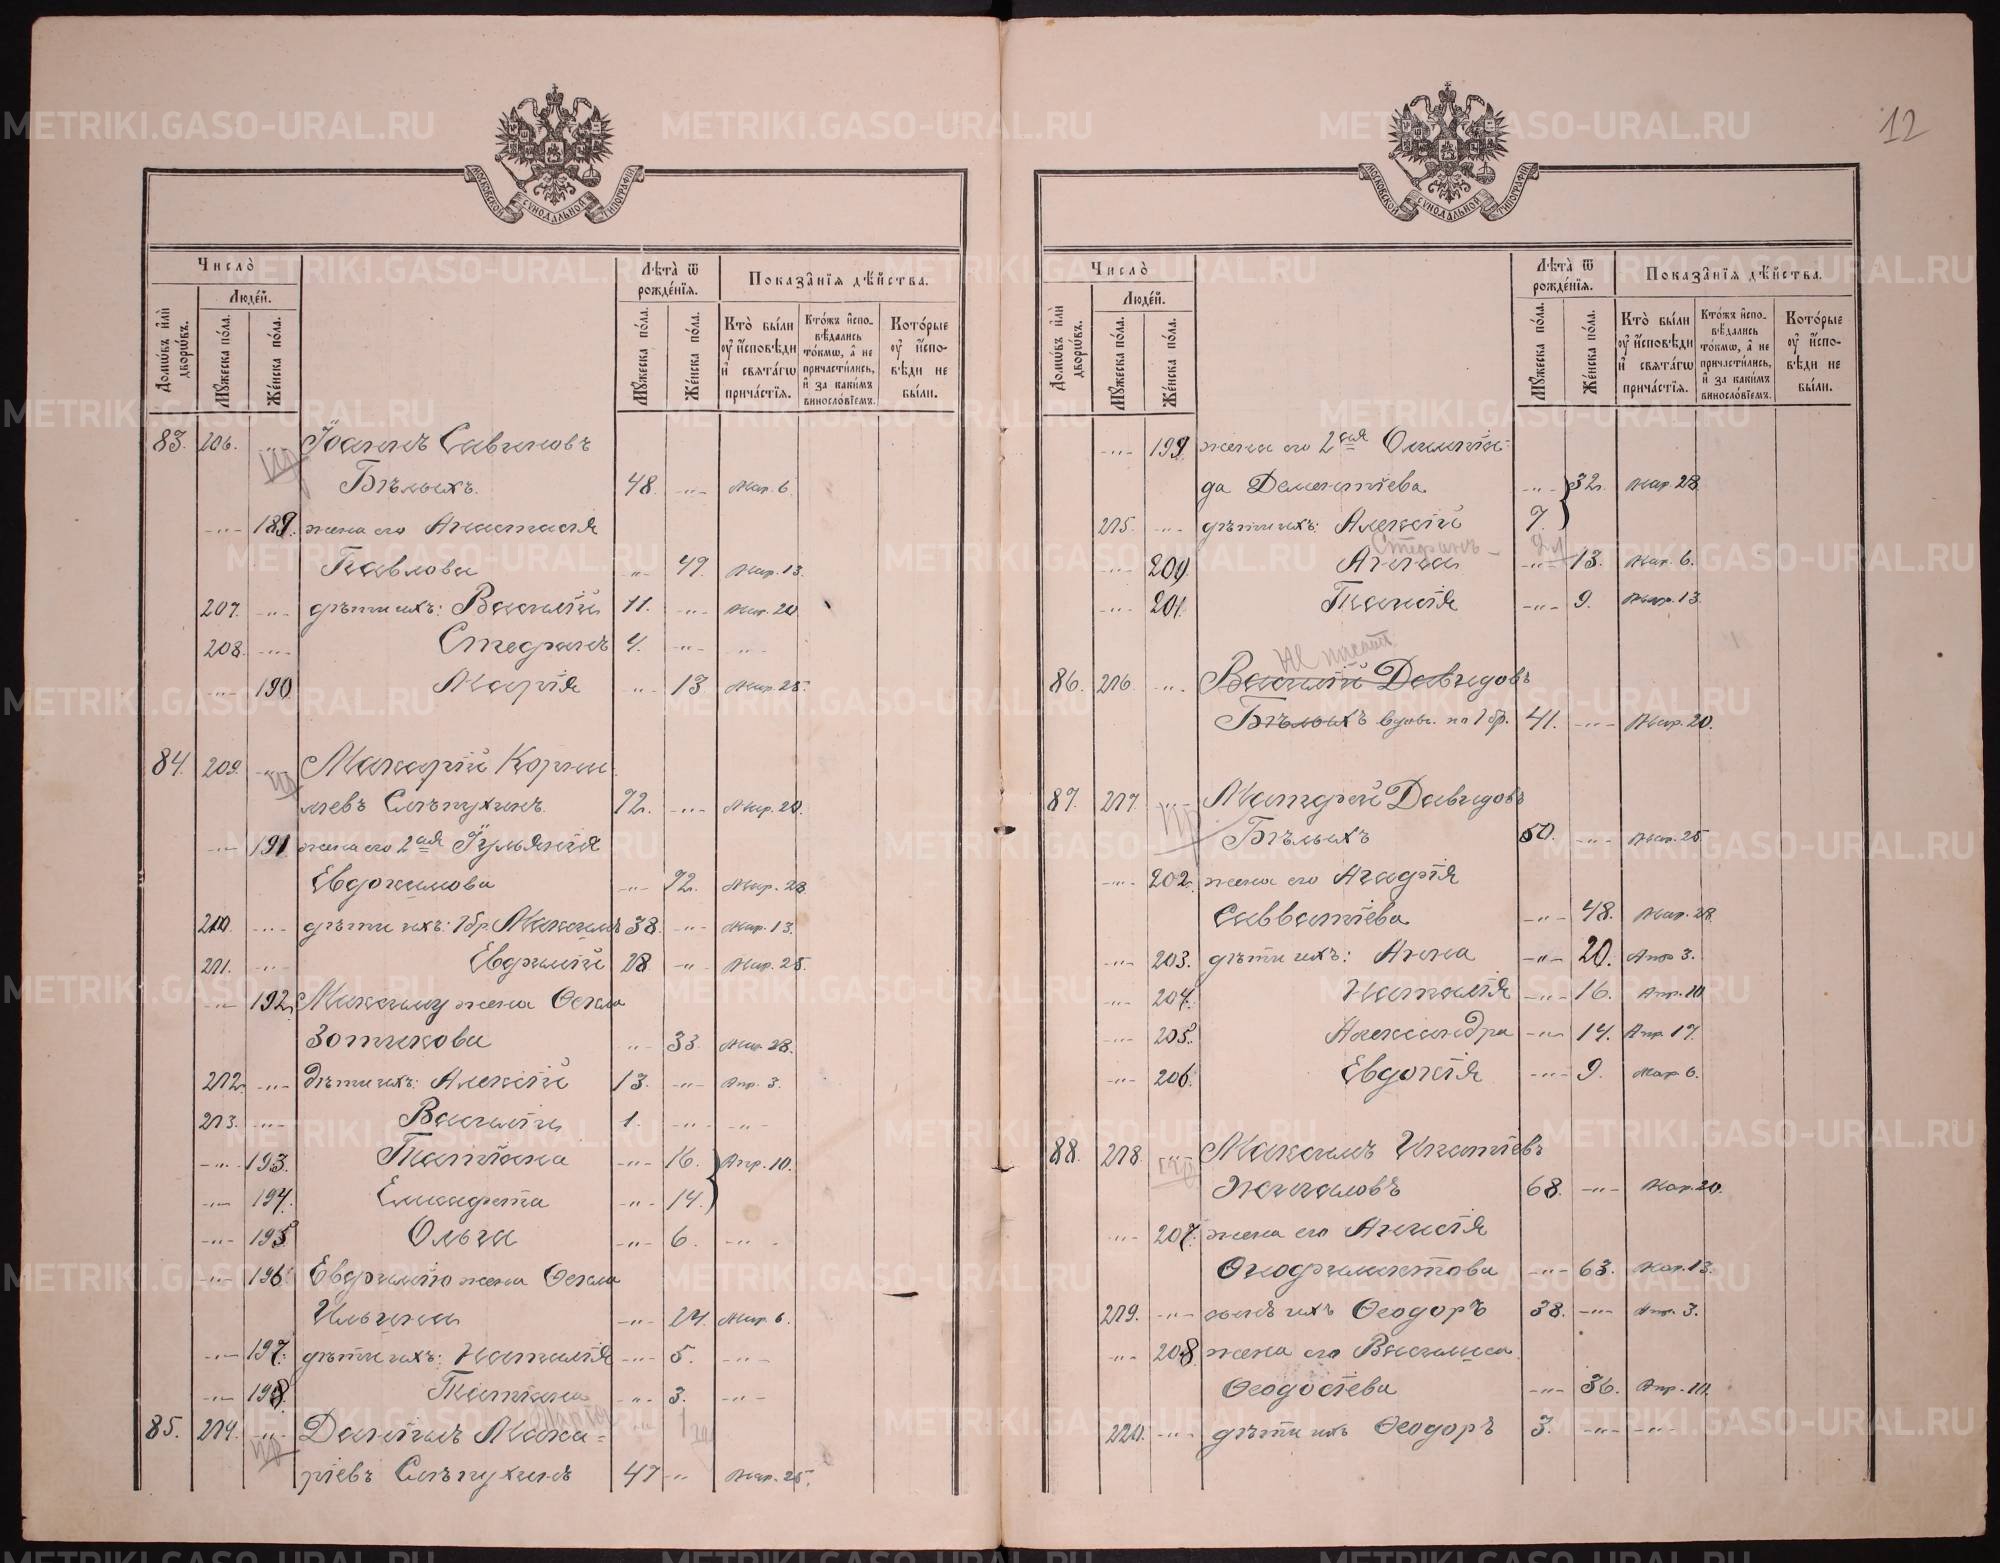 12
МОСКОВСКОЙ СѴНОДАЛЬНОЙ ТИПОГРАФІИ
Число̀
Людéй.
Домѡ́въ и҆лѝ дворѡ́въ.
Мꙋ́жеска по́ла.
Же́нска по́ла.
Лѣ́та ѿ рождéнїѧ.
Мꙋ́жеска по́ла.
Же́нска по́ла.
Показа̂нїѧ дѣ́йства.
Кто̀ бы́ли оу҆ и҆сповѣ́ди и҆ свѧта́гѡ прича́стїѧ.
Кто́жъ и҆спо-вѣ́дались то́кмѡ, а҆ не причасти́лись, и҆ за каки́мъ винословіемъ.
Кото́рые оу҆ и҆спо-вѣ́ди не бы́ли.
83. 206. Іоаннъ Савиновъ
Бѣлыхъ. 48. -"- Мар. 6.
-"- 189. жена его Анастасія
Павлова -"- 49. Мар. 13.
207. -"- дѣти ихъ: Василій 11. -"- Мар. 20
208. -"- Стефанъ 4. -"- -"-
-"- 190. Марія -"- 13 Мар. 25.
84. 209. -"- Макарій Корни-
ліевъ Слѣпухинъ. 72. -"- Мар. 20.
-"- 191 жена его 2ая Іульянія
Евдокимова -"- 72. Мар. 28
210. -"- дѣти ихъ: 1 бр. Максимъ 38. -"- Мар. 13.
211. -"- Евфимій 28. -"- Мар. 25.
-"- 192. Максиму жена Ѳекла
Зотикова -"- 33. Мар. 28.
212. -"- дѣти ихъ: Алексій 13. -"- Апр. 3.
213. -"- Василій 1. -"- -"-
-"- 193. Татіана -"- 16. Апр. 10.
-"- 194. Елисавета -"- 14.
-"- 195 Ольга -"- 6. -"-
-"- 196. Евфимію жена Ѳекла
Ильина -"- 24. Мар. 6.
-"- 197. дѣти ихъ: Наталія -"- 5. -"-
-"- 198. Татіана -"- 3. -"-
85. 214. -"- Даніилъ Мака-
ріевъ Слѣпухинъ 47 -"- Мар. 25.
МОСКОВСКОЙ СѴНОДАЛЬНОЙ ТИПОГРАФІИ
Число̀
Людéй.
Домѡ́въ и҆лѝ дворѡ́въ.
Мꙋ́жеска по́ла.
Же́нска по́ла.
Лѣ́та ѿ рождéнїѧ.
Мꙋ́жеска по́ла.
Же́нска по́ла.
Показа̂нїѧ дѣ́йства.
Кто̀ бы́ли оу҆ и҆сповѣ́ди и҆ свѧта́гѡ прича́стїѧ.
Кто́жъ и҆спо-вѣ́дались то́кмѡ, а҆ не причасти́лись, и҆ за каки́мъ винословіемъ.
Кото́рые оу҆ и҆спо-вѣ́ди не бы́ли.
-"- 199. жена его 2ая Олимпіа-
да Дементіева -"- 32. Мар. 28.
215. -"- дѣти ихъ: Алексій 7.
Стефанъ
-"- 200. Анна -"- 13. Мар. 6.
-"- 201. Таисія -"- 9. Мар. 13.
86. 216. -"- Василій Давидовъ
Бѣлыхъ вдов. по 1 бр. 41. -"- Мар. 20.
87. 217. -"- Матфей Давидовъ
Бѣлыхъ 50. -"- Мар. 25
-"- 202. жена его Агафія
Савватіева -"- 48. Мар. 28
-"- 203. дѣти ихъ: Анна -"- 20. Апр. 3.
-"- 204. Наталія -"- 16. Апр. 10
-"- 205. Александра -"- 14. Апр. 17.
-"- 206. Евдокія -"- 9. Мар. 6.
88. 218. -"- Максимъ Игнатіевъ
Жигаловъ 68. -"- Мар. 20.
-"- 207. жена его Анисія
Ѳеофилактова -"- 63. Мар. 13.
219. -"- сынъ ихъ Ѳеодоръ 38. -"- Апр. 3.
-"- 208 жена его Василиса
Ѳеодосіева -"- 36. Апр. 10.
220. -"- дѣти ихъ Ѳеодоръ 3. -"- -"-
METRIKI.GASO-URAL.RU